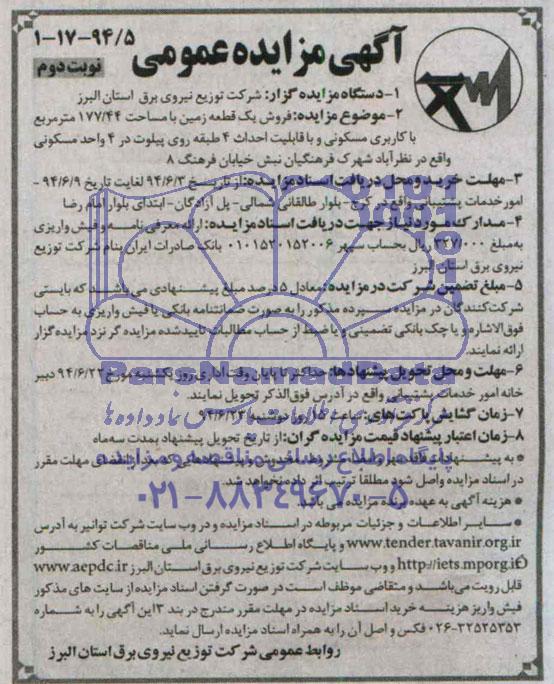 آگهی مزایده عمومی
۱-۱۷-۹۴/۵
نوبت دوم
۱-دستگاه مزایده گزار: شرکت توزیع نیروی برق استان البرز
۲-موضوع مزایده: فروش یک قطعه زمین با مساحت ۱۷۷/۴۴ مترمربع
با کاربری مسکونی و با قابلیت احداث ۴ طبقه روی پیلوت در ۴ واحد مسکونی
واقع در نظرآباد شهرک فرهنگیان نبش خیابان فرهنگ ۸
۳-مهلت خرید و محل دریافت اسناد مزایده: از تاریخ ۹۴/۶/۳ لغایت تاریخ ۹۴/۶/۹ -
امور خدمات پشتیبانی واقع در کرج- بلوار طالقانی شمالی- پل آزادگان- ابتدای بلوار امام رضا
۴-مدارک مورد نیاز جهت دریافت اسناد مزایده: ارائه معرفی نامه و فیش واریزی
به مبلغ ۳۲۷/۰۰۰ ریال بحساب سپهر ۰۱۰۱۵۲۰۱۵۲۰۰۶ بانک صادرات ایران بنام شرکت توزیع
نیروی برق استان البرز
۵-مبلغ تضمین شرکت در مزایده: معادل ۵ درصد مبلغ پیشنهادی می باشد که بایستی
شرکت کنندگان در مزایده سپرده مذکور را به صورت ضمانتنامه بانکی یا فیش واریزی به حساب
فوق الاشاره و یا چک بانکی تضمینی و یا ضبط از حساب مطالبات تایید شده مزایده گر نزد مزایده گزار
ارائه نمایند.
۶-مهلت و محل تحویل پیشنهادها: حداکثر تا پایان وقت اداری روز یکشنبه مورخ ۹۴/۶/۲۲ دبیر
خانه امور خدمات پشتیبانی واقع در آدرس فوق الذکر تحویل نمایند.
۷-زمان گشایش پاکت های: ساعت ۱۵ روز دوشنبه ۹۴/۶/۲۳
۸-زمان اعتبار پیشنهاد قیمت مزایده گران: از تاریخ تحویل پیشنهاد بمدت سه ماه
* به پیشنهادهای فاقد سپرده، امضاء، مشروط، مخدوش و پیشنهادهایی که بعد از انقضای مهلت مقرر
در اسناد مزایده واصل شود مطلقا ترتیب اثر داده نخواهد شد.
* هزینه آگهی به عهده برنده مزایده می باشد.
* سایر اطلاعات و جزئیات مربوطه در اسناد مزایده و در وب سایت شرکت توانیر به آدرس
www.tender.tavanir.org.ir و پایگاه اطلاع رسانی ملی مناقصات کشور
http://iets.mporg.ir و وب سایت شرکت توزیع نیروی برق استان البرز www.aepdc.ir
قابل رویت می باشد و متقاضی موظف است در صورت گرفتن اسناد مزایده از سایت های مذکور
فیش واریز هزینه خرید اسناد مزایده در مهلت مقرر مندرج در بند ۳ این آگهی را به شماره
۰۲۶-۳۲۵۲۵۳۵۳ فکس و اصل آن را به همراه اسناد مزایده ارسال نماید.
روابط عمومی شرکت توزیع نیروی برق استان البرز
ParsNamadData
پایگاه اطلاع رسانی مناقصه و مزایده
۰۲۱-۸۸۳۴۹۶۷۰-۵